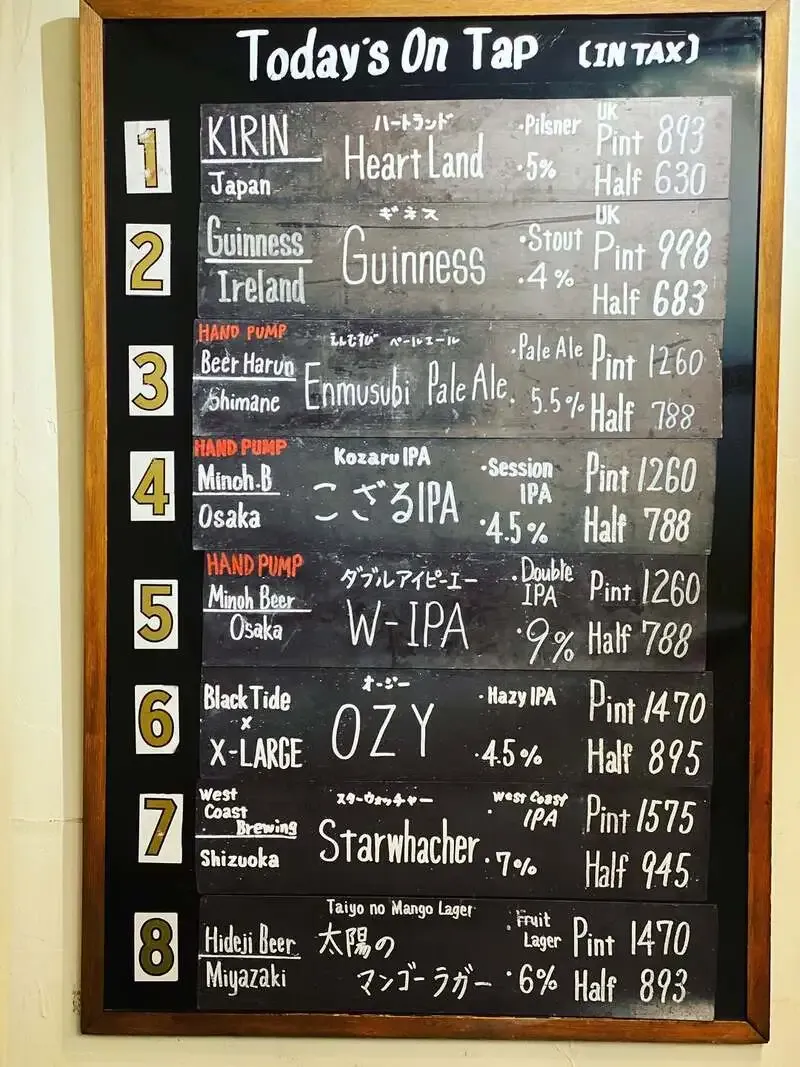 Today's On Tap (IN TAX)
1
KIRIN
Japan
ハートランド
Heart Land
・Pilsner
・5%
UK
Pint 893
Half 630
2
Guinness
Ireland
ギネス
Guinness
・Stout
・4%
UK
Pint 998
Half 683
3
HAND PUMP
Beer Harun
Shimane
えんむすび ペールエール
Enmusubi Pale Ale.
・Pale Ale
5.5%
Pint 1260
Half 788
4
HAND PUMP
Minoh.B
Osaka
Kozaru IPA
こざるIPA
・Session
IPA
・4.5%
Pint 1260
Half 788
5
HAND PUMP
Minoh Beer
Osaka
ダブルアイピーエー
W-IPA
・Double
IPA
・9%
Pint 1260
Half 788
6
Black Tide
x
X-LARGE
オージー
OZY
・Hazy IPA
・4.5%
Pint 1470
Half 895
7
West
Coast
Brewing
Shizuoka
スターウォッチャー
Starwhacher
・West Coast
IPA
・7%
Pint 1575
Half 945
8
Hideji Beer
Miyazaki
Taiyo no Mango Lager
太陽の
マンゴーラガー
・Fruit
Lager
・6%
Pint 1470
Half 893